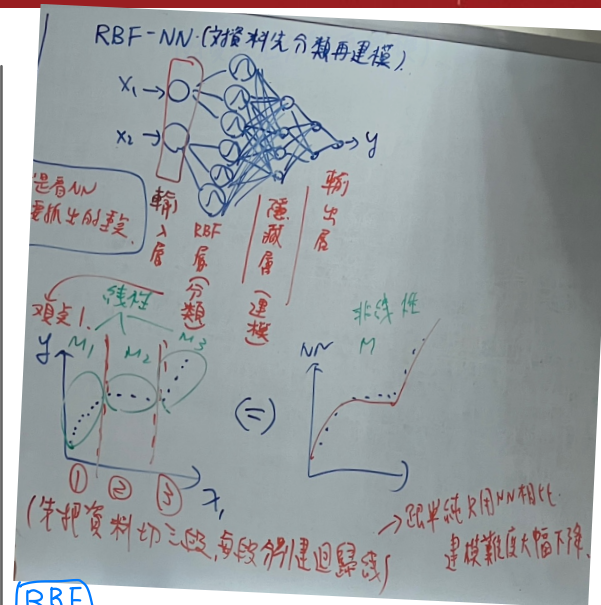 RBF-NN.(對資料先分類再建模).
X1
X2
y
是看NN
要抓出的
輸入層
RBF層(分類)
隱藏層(建模)
輸出層
觀點1.
線性
非線性
y
M1
M2
M3
NN
M
(=)
① ② ③
X1
(先把資料切三段,每段分別建迴歸線)
→跟單純只用NN相比.
建模難度大幅下降.
RBF